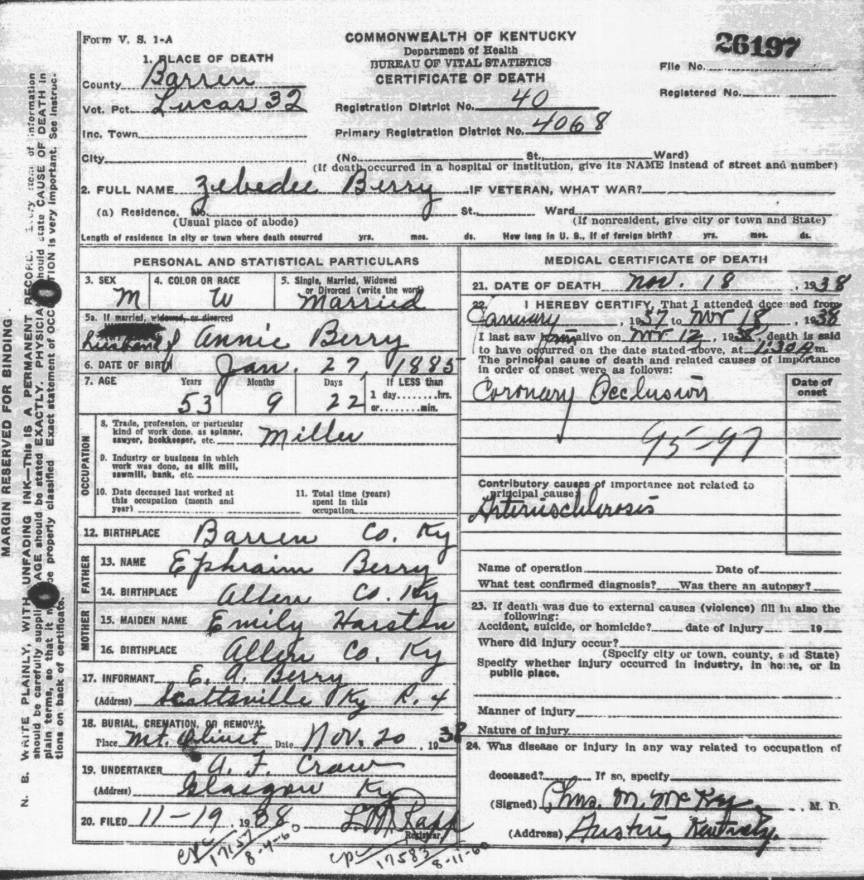 Form V. S. 1-A
COMMONWEALTH OF KENTUCKY
Department of Health
BUREAU OF VITAL STATISTICS
CERTIFICATE OF DEATH
26197
File No.
Registered No.
1. PLACE OF DEATH
County Barren
Vot. Pct. Lucas 32
Inc. Town
City
Registration District No. 40
Primary Registration District No. 4068
(No. St., Ward)
(If death occurred in a hospital or institution, give its NAME instead of street and number)
2. FULL NAME Zebedee Berry IF VETERAN, WHAT WAR?
(a) Residence. No. St., Ward
(Usual place of abode) (If nonresident, give city or town and State)
Length of residence in city or town where death occurred yrs. mos. ds. How long in U. S., if of foreign birth? yrs. mos. ds.
PERSONAL AND STATISTICAL PARTICULARS
3. SEX M
4. COLOR OR RACE W
5. Single, Married, Widowed or Divorced (write the word) Married
5a. If married, widowed, or divorced
husband of Annie Berry
6. DATE OF BIRTH Jan 27, 1885
7. AGE Years 53 Months 9 Days 22 If LESS than 1 day hrs. or min.
OCCUPATION
8. Trade, profession, or particular kind of work done, as spinner, sawyer, bookkeeper, etc. Miller
9. Industry or business in which work was done, as silk mill, sawmill, bank, etc.
10. Date deceased last worked at this occupation (month and year)
11. Total time (years) spent in this occupation.
12. BIRTHPLACE Barren Co. Ky
FATHER
13. NAME Ephraim Berry
14. BIRTHPLACE Allen Co. Ky
MOTHER
15. MAIDEN NAME Emily Harston
16. BIRTHPLACE Allen Co. Ky
17. INFORMANT E. A. Berry
(Address) Scottsville Ky R. 4
18. BURIAL, CREMATION, OR REMOVAL
Place Mt. Olivet Date Nov. 20, 1938
19. UNDERTAKER A. F. Crow
(Address) Glasgow Ky
20. FILED 11-19, 1938 Rapp
Registrar
17157
8-4-60
17583
8-11-60
MEDICAL CERTIFICATE OF DEATH
21. DATE OF DEATH Nov. 18, 1938
22. I HEREBY CERTIFY, That I attended deceased from
January, 1937 to Nov 18, 1938
I last saw him alive on Nov 12, 1938, death is said
to have occurred on the date stated above, at 1:30 A m.
The principal cause of death and related causes of importance
in order of onset were as follows:
Date of onset
Coronary Occlusion
95-97
Contributory causes of importance not related to
principal cause:
Arteriosclerosis
Name of operation Date of
What test confirmed diagnosis? Was there an autopsy?
23. If death was due to external causes (violence) fill in also the
following:
Accident, suicide, or homicide? date of injury 19
Where did injury occur?
(Specify city or town, county, and State)
Specify whether injury occurred in industry, in home, or in
public place.
Manner of injury
Nature of injury
24. Was disease or injury in any way related to occupation of
deceased? If so, specify
(Signed) Chas. M. McKy, M. D.
(Address) Austin, Kentucky.
MARGIN RESERVED FOR BINDING
N. B. WRITE PLAINLY, WITH UNFADING INK—This IS A PERMANENT RECORD. Every item of information
should be carefully supplied. AGE should be stated EXACTLY. PHYSICIANS should state CAUSE OF DEATH in
plain terms, so that it may be properly classified. Exact statement of OCCUPATION is very important. See instruc-
tions on back of certificate.